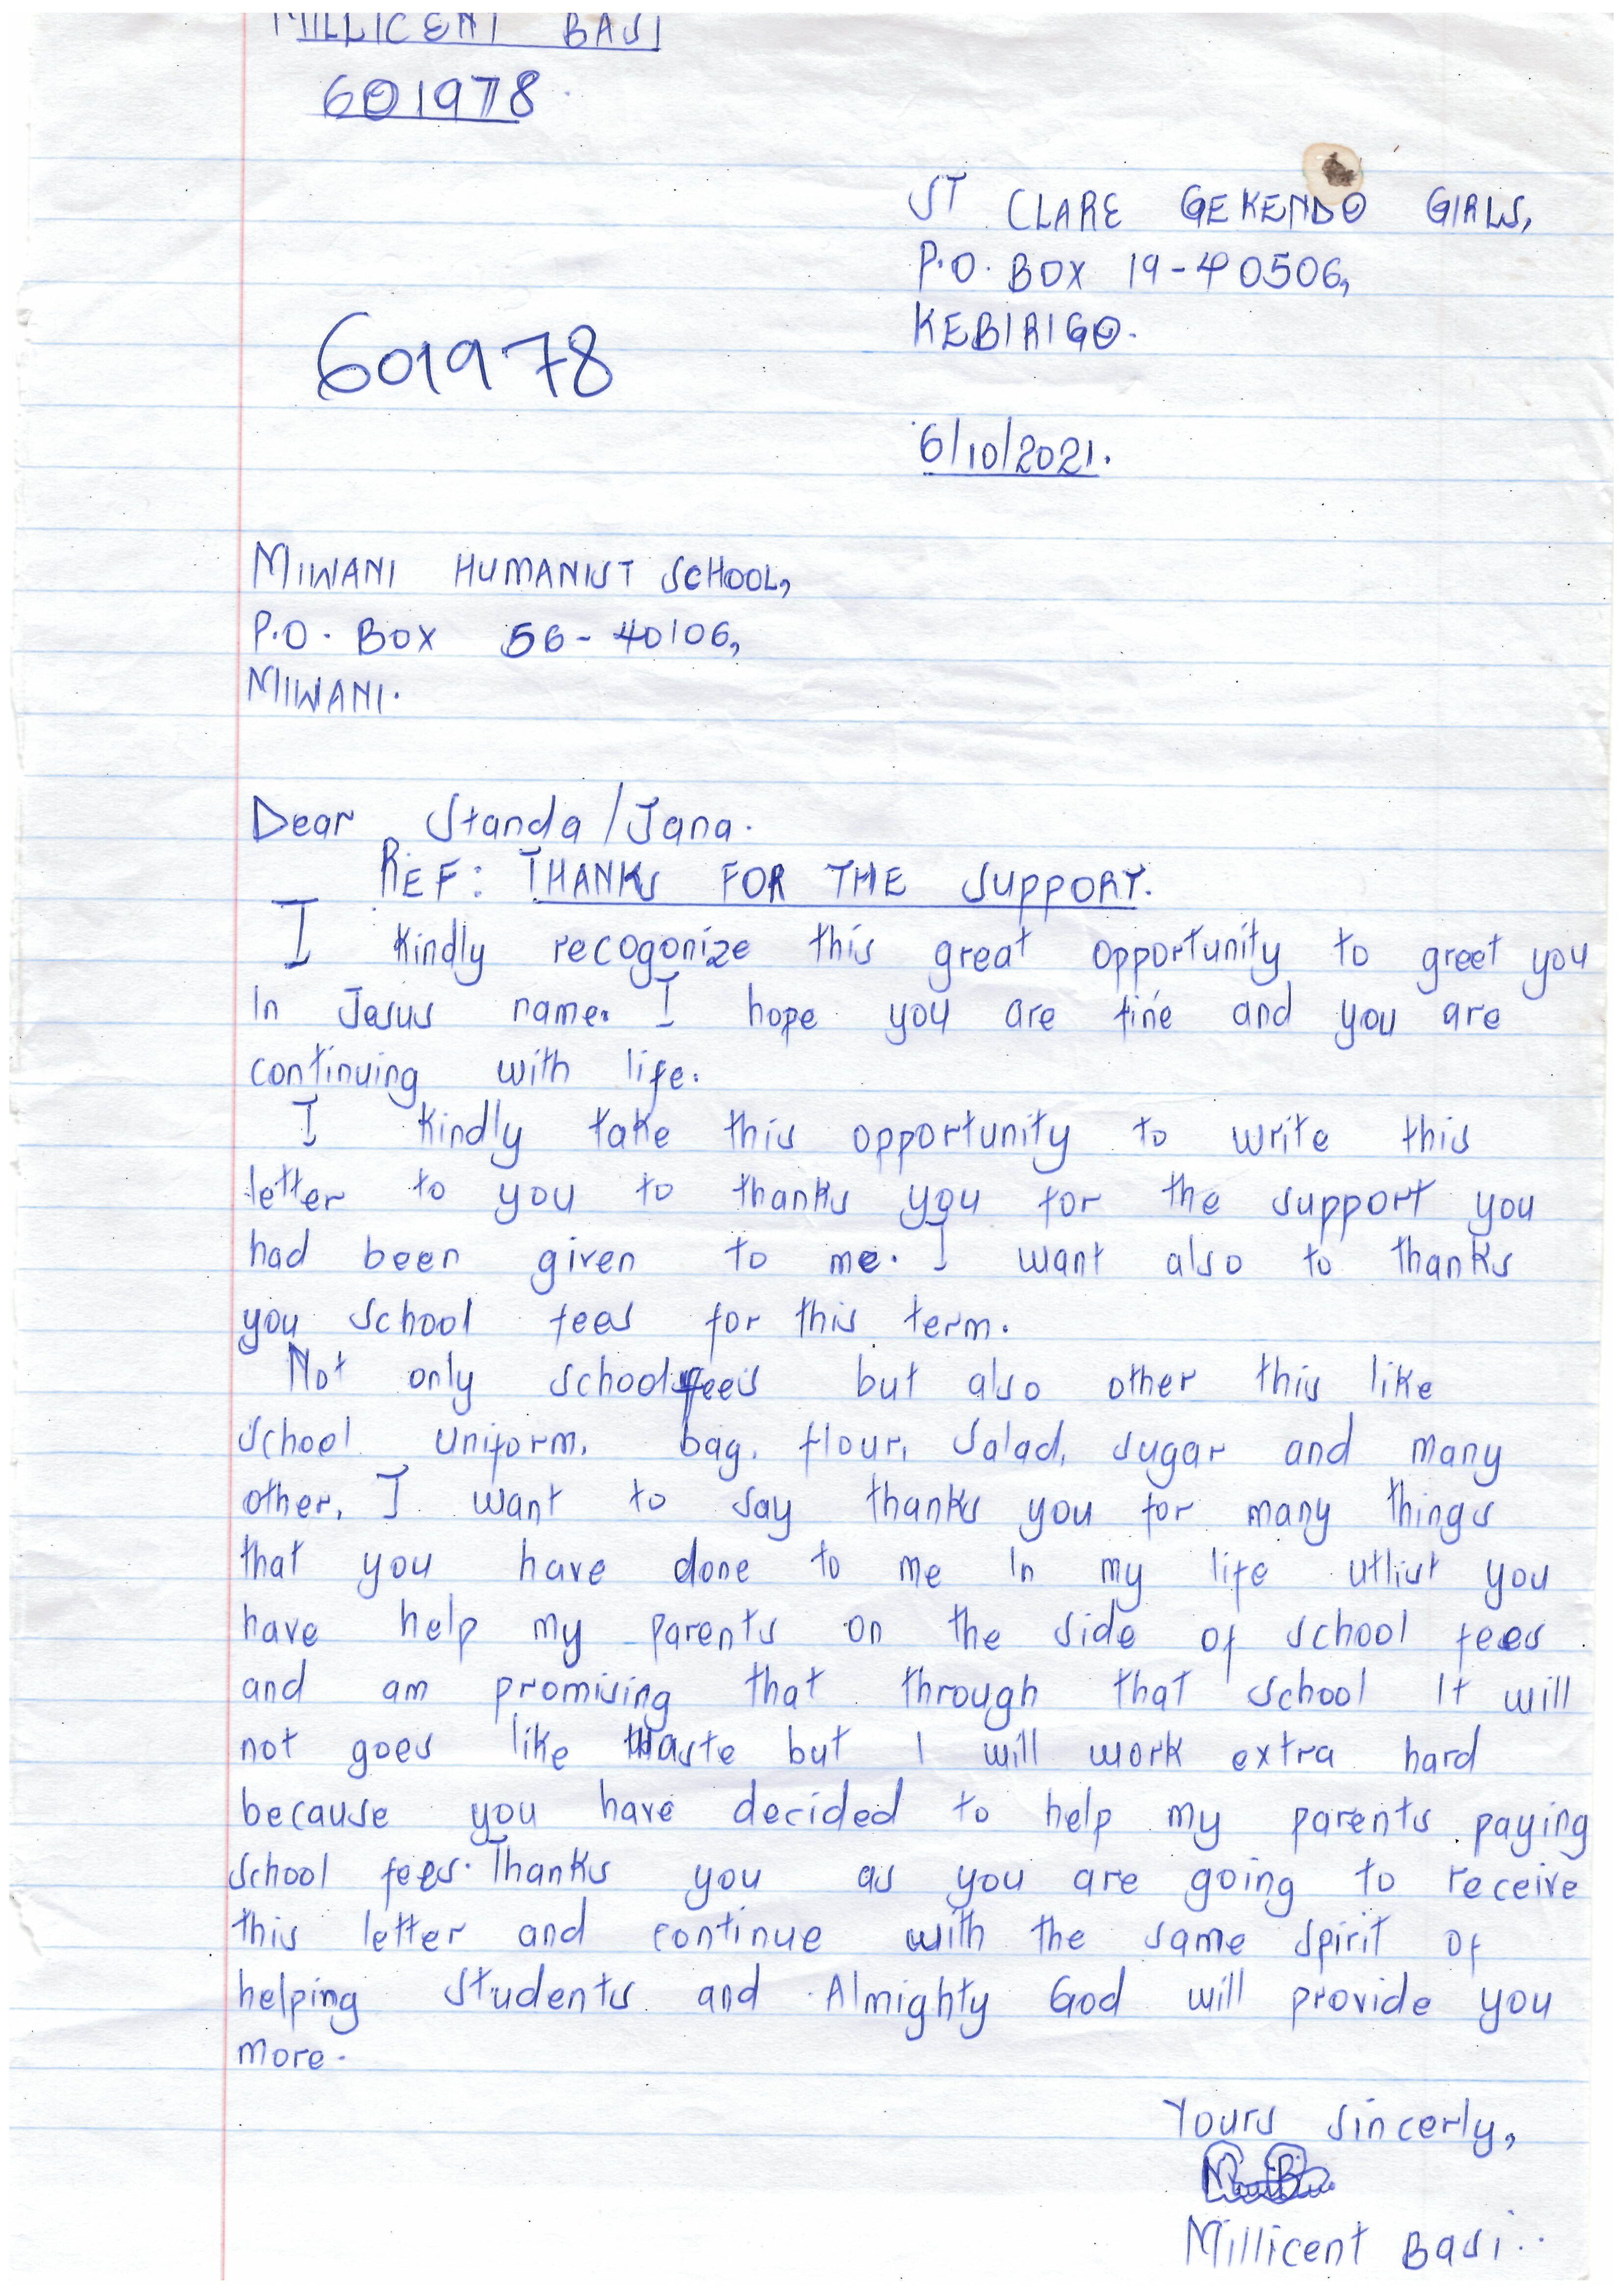 MILLICENT BASI
601978
ST CLARE GEKENDO GIRLS,
P.O. BOX 19-40506,
KEBIRIGO.
601978
6/10/2021.
MIWANI HUMANIST SCHOOL,
P.O. BOX 56-40106,
MIWANI.
Dear Standa/Jana.
REF: THANKS FOR THE SUPPORT.
I kindly recogonize this great opportunity to greet you
In Jesus name. I hope you are fine and you are
continuing with life.
I kindly take this opportunity to write this
letter to you to thanks you for the support you
had been given to me. I want also to thanks
you school fees for this term.
Not only school fees but also other this like
school uniform, bag, flour, salad, sugar and many
other, I want to say thanks you for many things
that you have done to me In my life utlist you
have help my parents on the side of school fees
and am promising that through that school It will
not goes like waste but I will work extra hard
because you have decided to help my parents paying
school fees. Thanks you as you are going to receive
this letter and continue with the same spirit of
helping students and Almighty God will provide you
more.
Yours sincerly,
Millicent Basi..